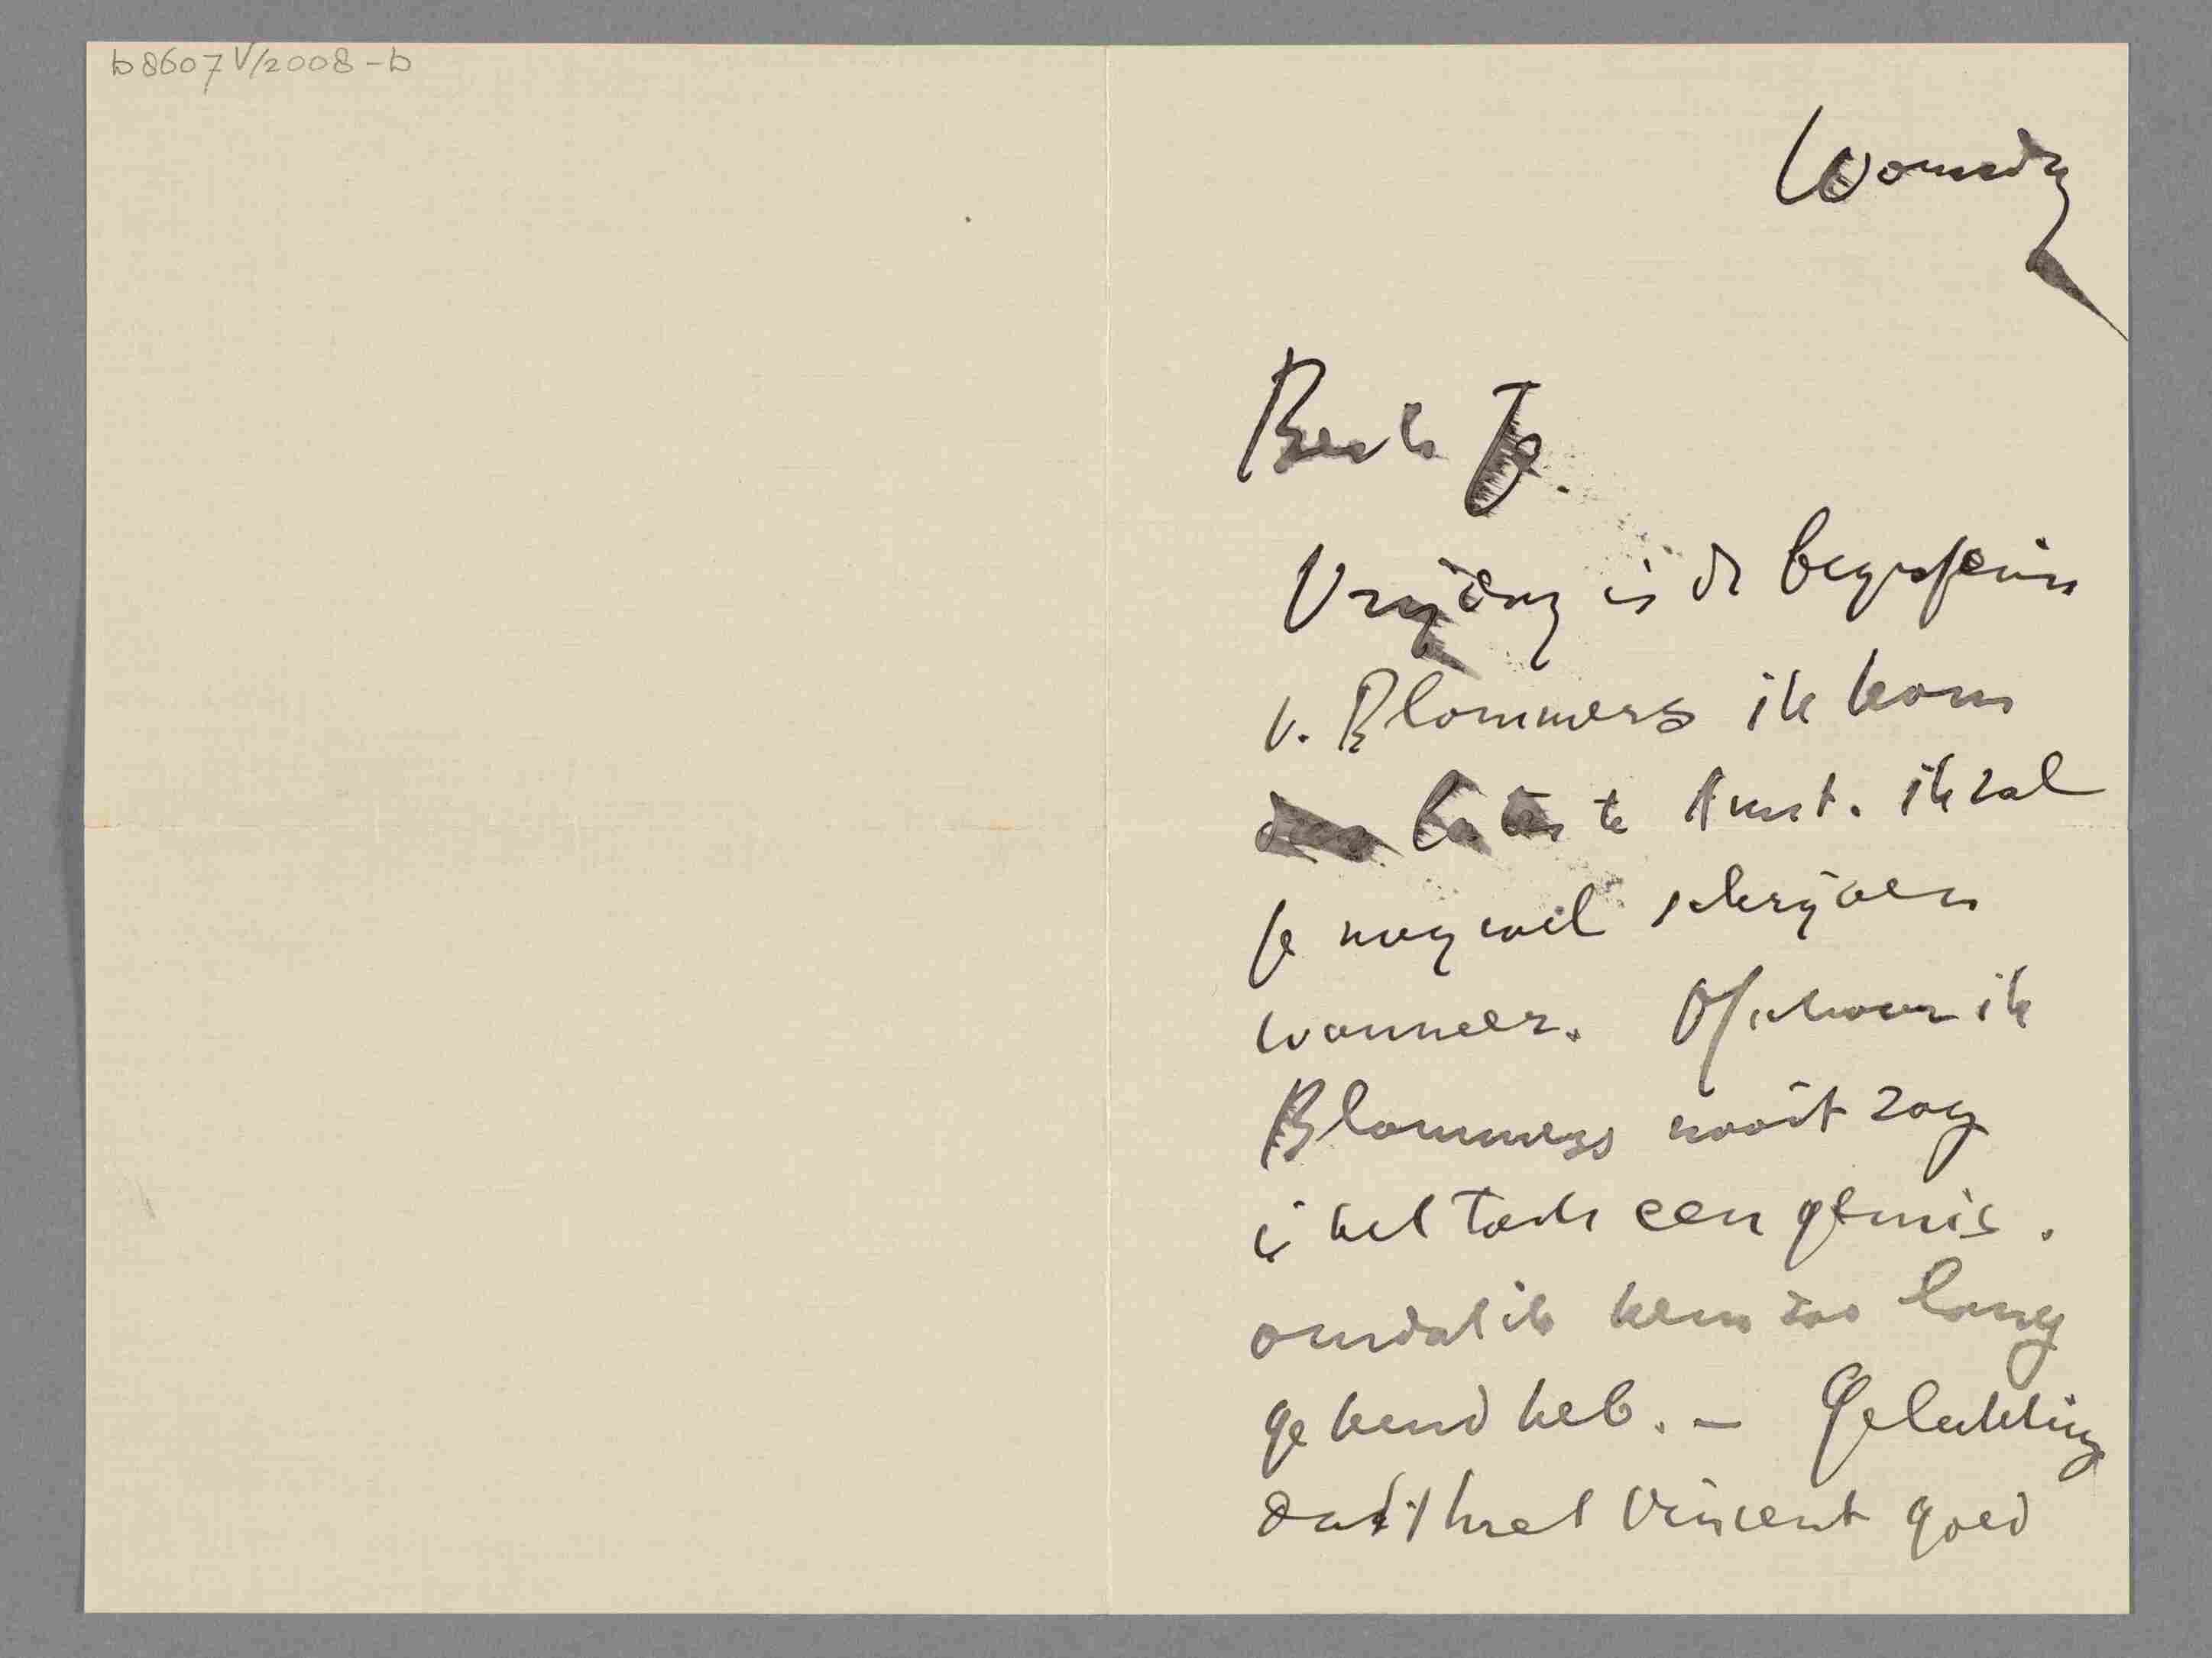 b8607 V/2008-b
Woensdg
Beste Jo.
Vrijdag is de begrafenis
v. Blommers ik kom
dus later te Amst. ik zal
je nog wel schrijven
wanneer. Ofschoon ik
Blommers nooit zag
is het toch een gemis.
omdat ik hem zoo lang
gekend heb. – Gelukkig
dat 't met Vincent goed